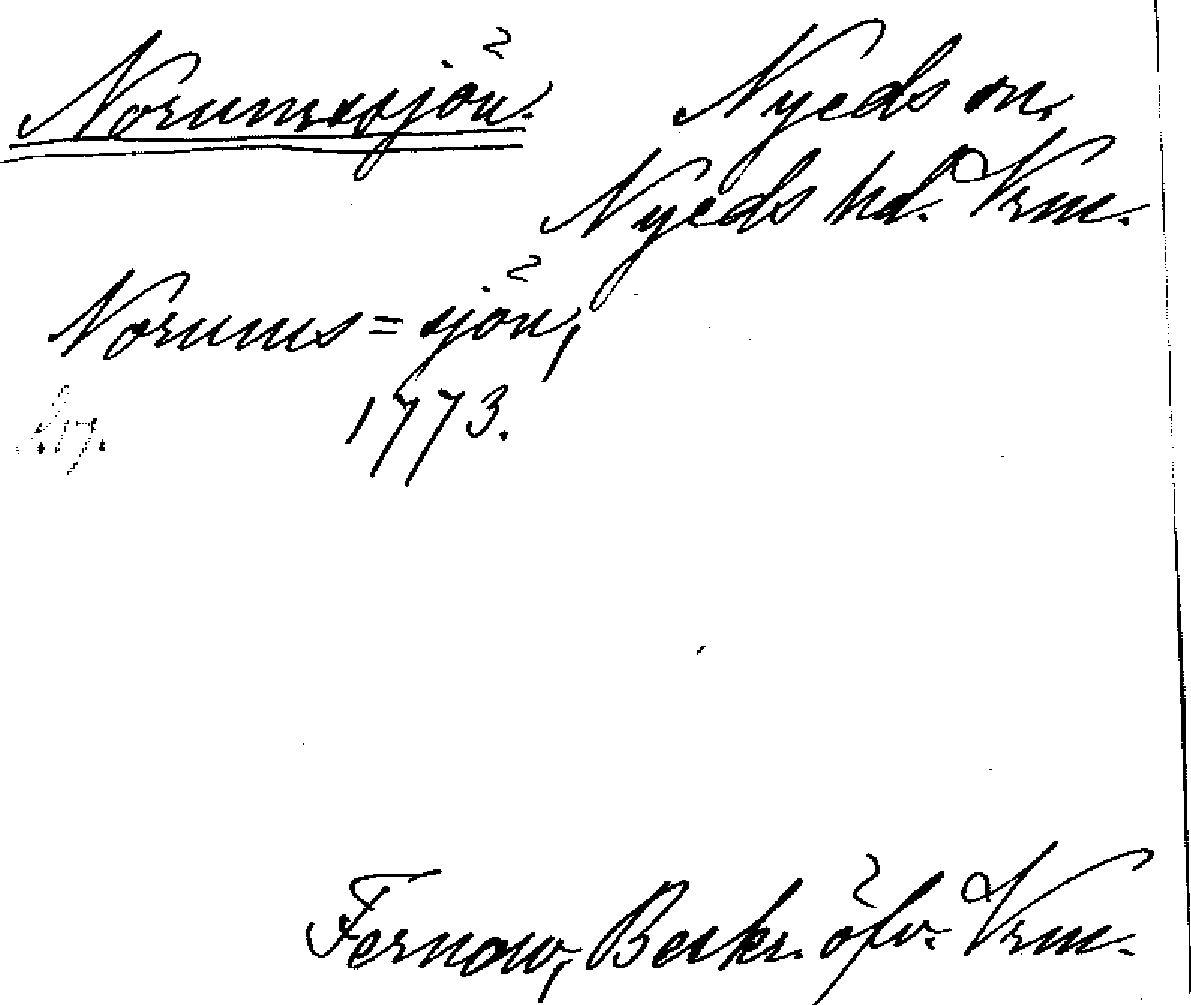 Norumssjön.
Nyeds sn.
Nyeds hd. Vrm.
Norums=sjön,
1773.
Fernow, Beskr. öfv. Vrm.